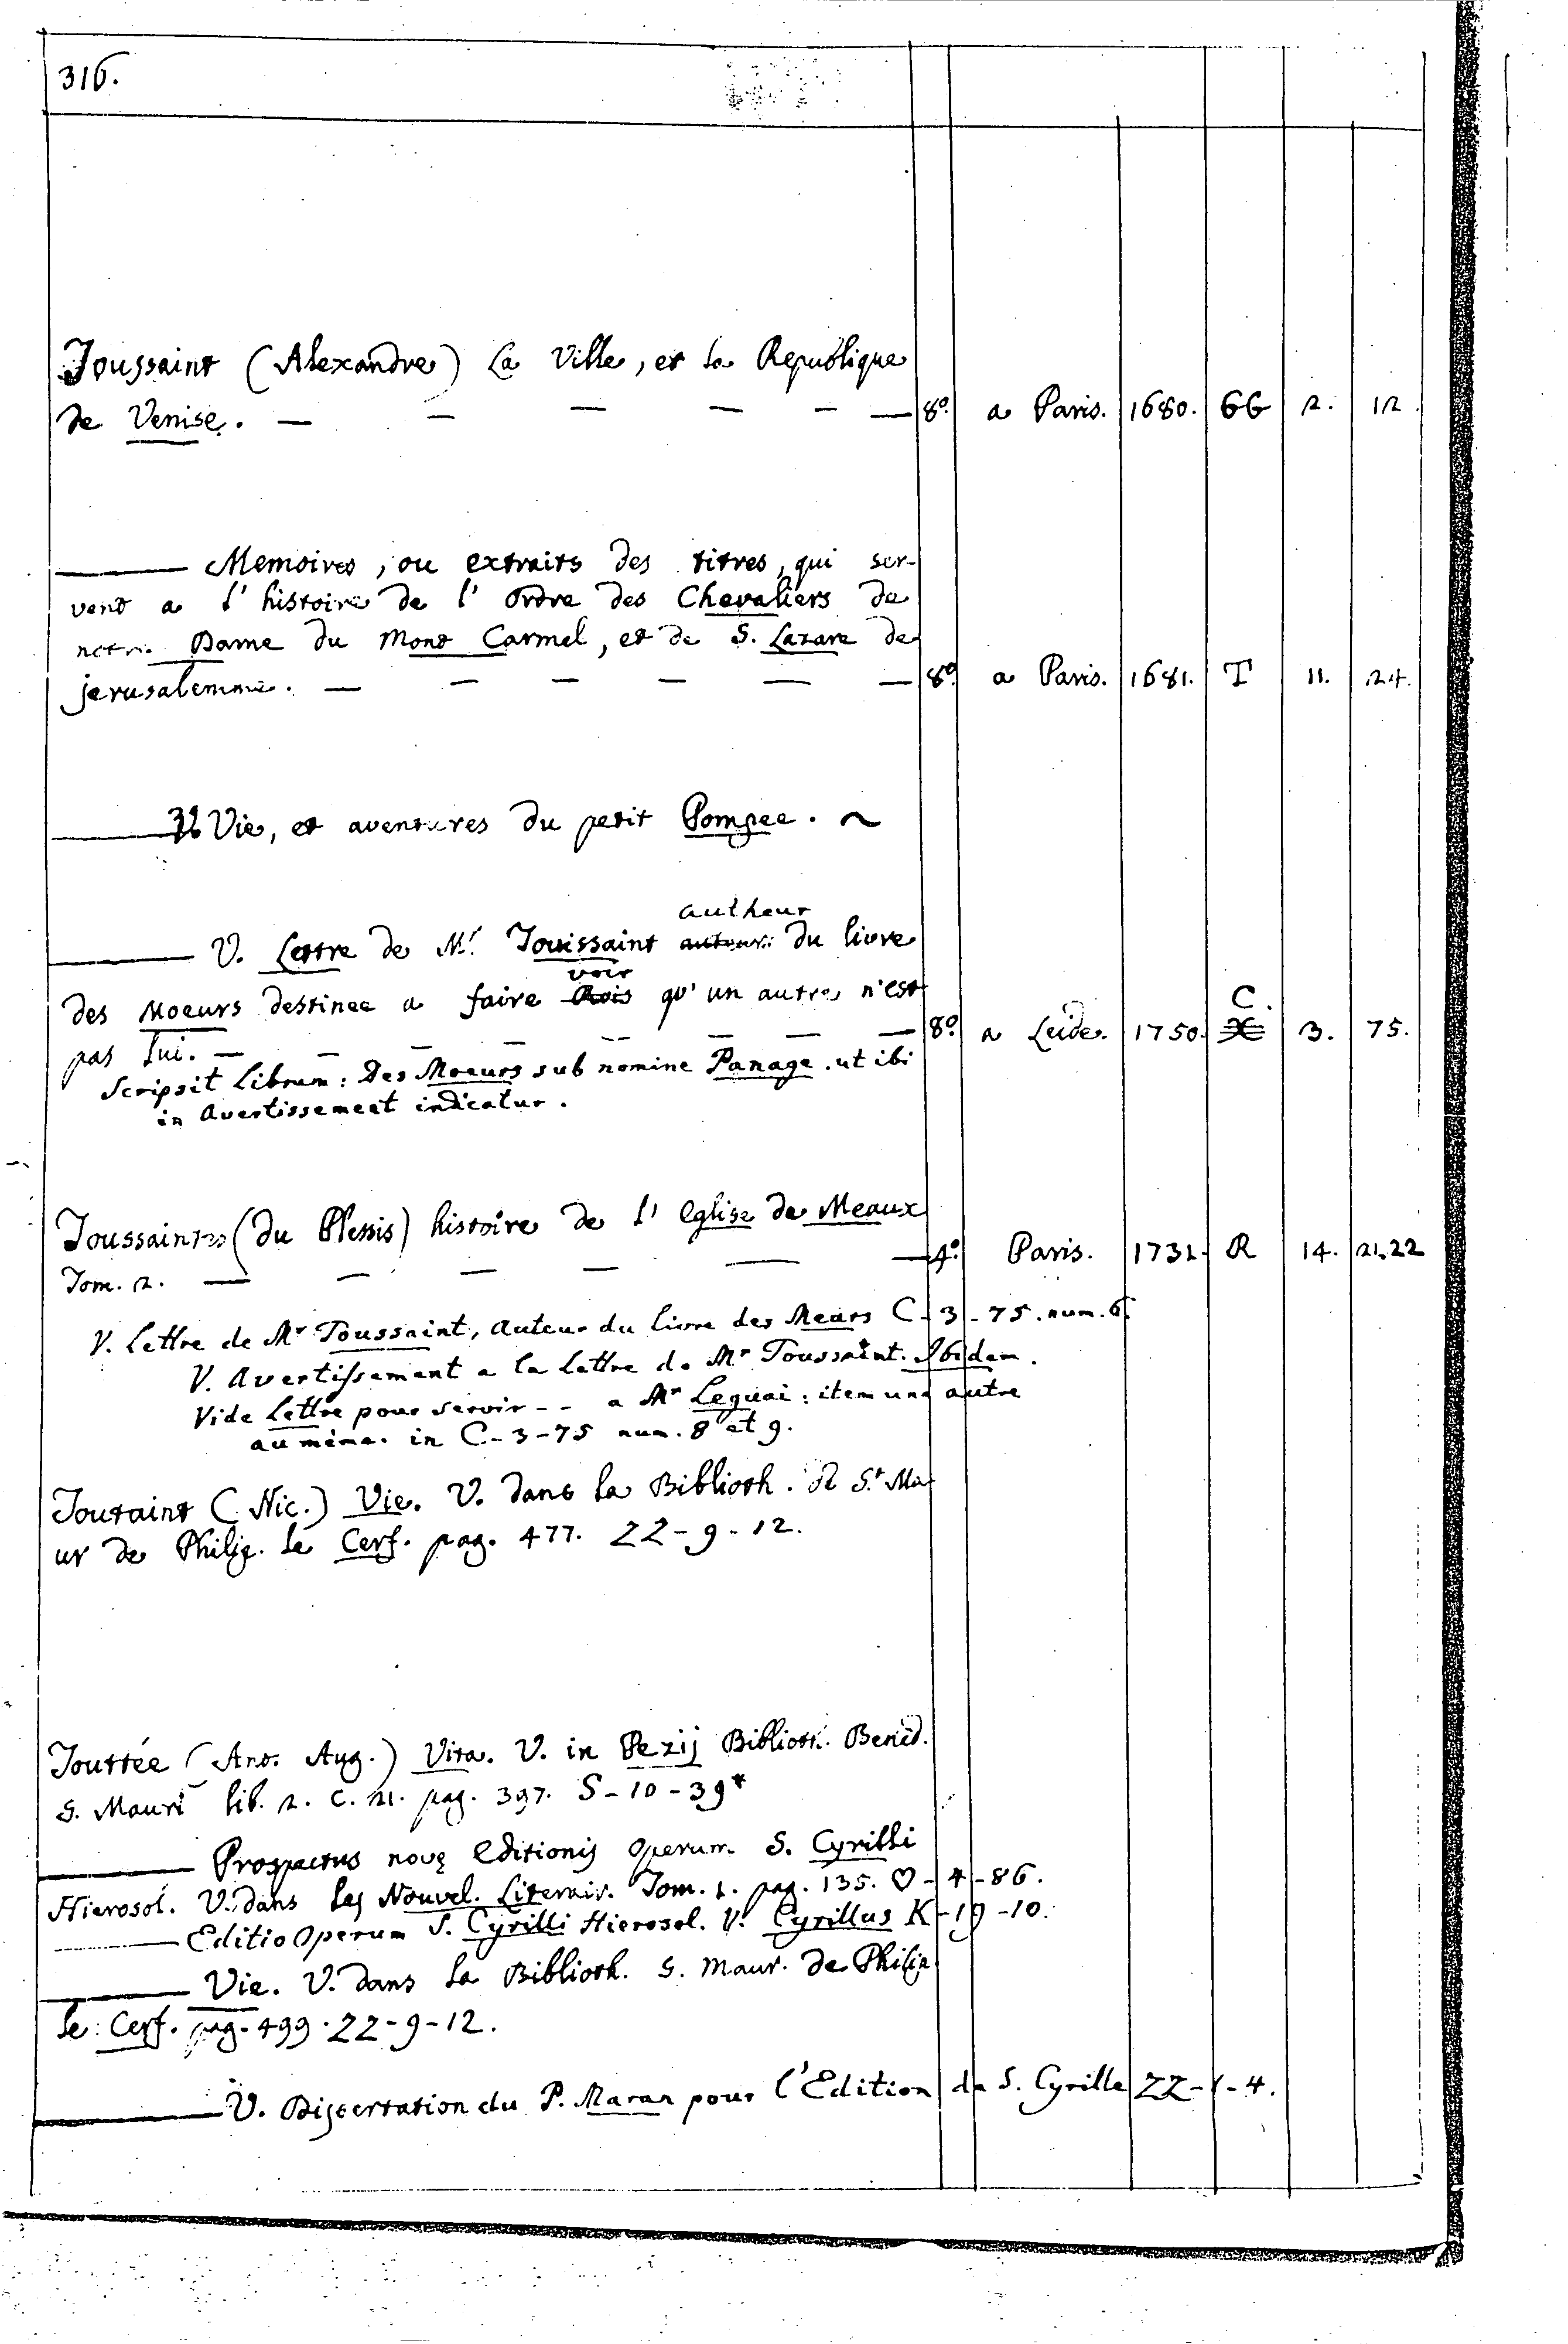 316.
Toussaint (Alexandre) La Ville, et la Republique
de Venise. — — — — — — 8º. a Paris. 1680. GG 2. 12.
——— Memoires, ou extraits des titres, qui ser-
vent a l' histoire de l' ordre des Chevaliers de
notre Dame du Mont Carmel, et de S. Lazare de
jerusalemme. — — — — — — 8º. a Paris. 1681. T 11. 24.
——— Vie, et aventures du petit Pompee. ~
autheur
——— V. Lettre de Mr. Touissaint auteur du livre
voir
des Moeurs destinee a faire qu' un autre n'est
C.
pas lui. — — — — — — — 8º. a Leide. 1750. 3. 75.
Scripsit Librum: Des Moeurs sub nomine Panage. ut ibi
in Avertissement indicatur.
Toussaintes (du Plessis) histoire de l' Eglise de Meaux
Tom. 2. — — — — — — 4º. Paris. 1731. R 14. 21.22
V. Lettre de Mr Toussaint, Auteur du livre des Meurs C-3-75. num. 6.
V. Avertissement a la Lettre de Mr Toussaint. Ibidem.
Vide Lettre pour servir - - a Mr Lequai: item una autre
au même. in C-3-75 num. 8 et 9.
Toutaint (Nic.) Vie. V. dans la Biblioth. St. Ma-
ur de Philip. le Cerf. pag. 477. ZZ-9-12.
Touttée (Ant. Aug.) Vita. V. in Pezij Biblioth. Bened.
S. Mauri lib. 2. c. 21. pag. 397. S-10-39*
——— Prospectus novę Editionis Operum S. Cyrilli
Hierosol. V. dans les Nouvel. Literair. Tom. 1. pag. 135. ♡-4-86.
——— Editio Operum S. Cyrilli Hierosol. V. Cyrillus K-19-10.
——— Vie. V. dans la Biblioth. S. Maur. de Philip.
le Cerf. pag. 499. ZZ-9-12.
——— V. Dissertation du P. Maran pour l'Edition de S. Cyrille ZZ-1-4.